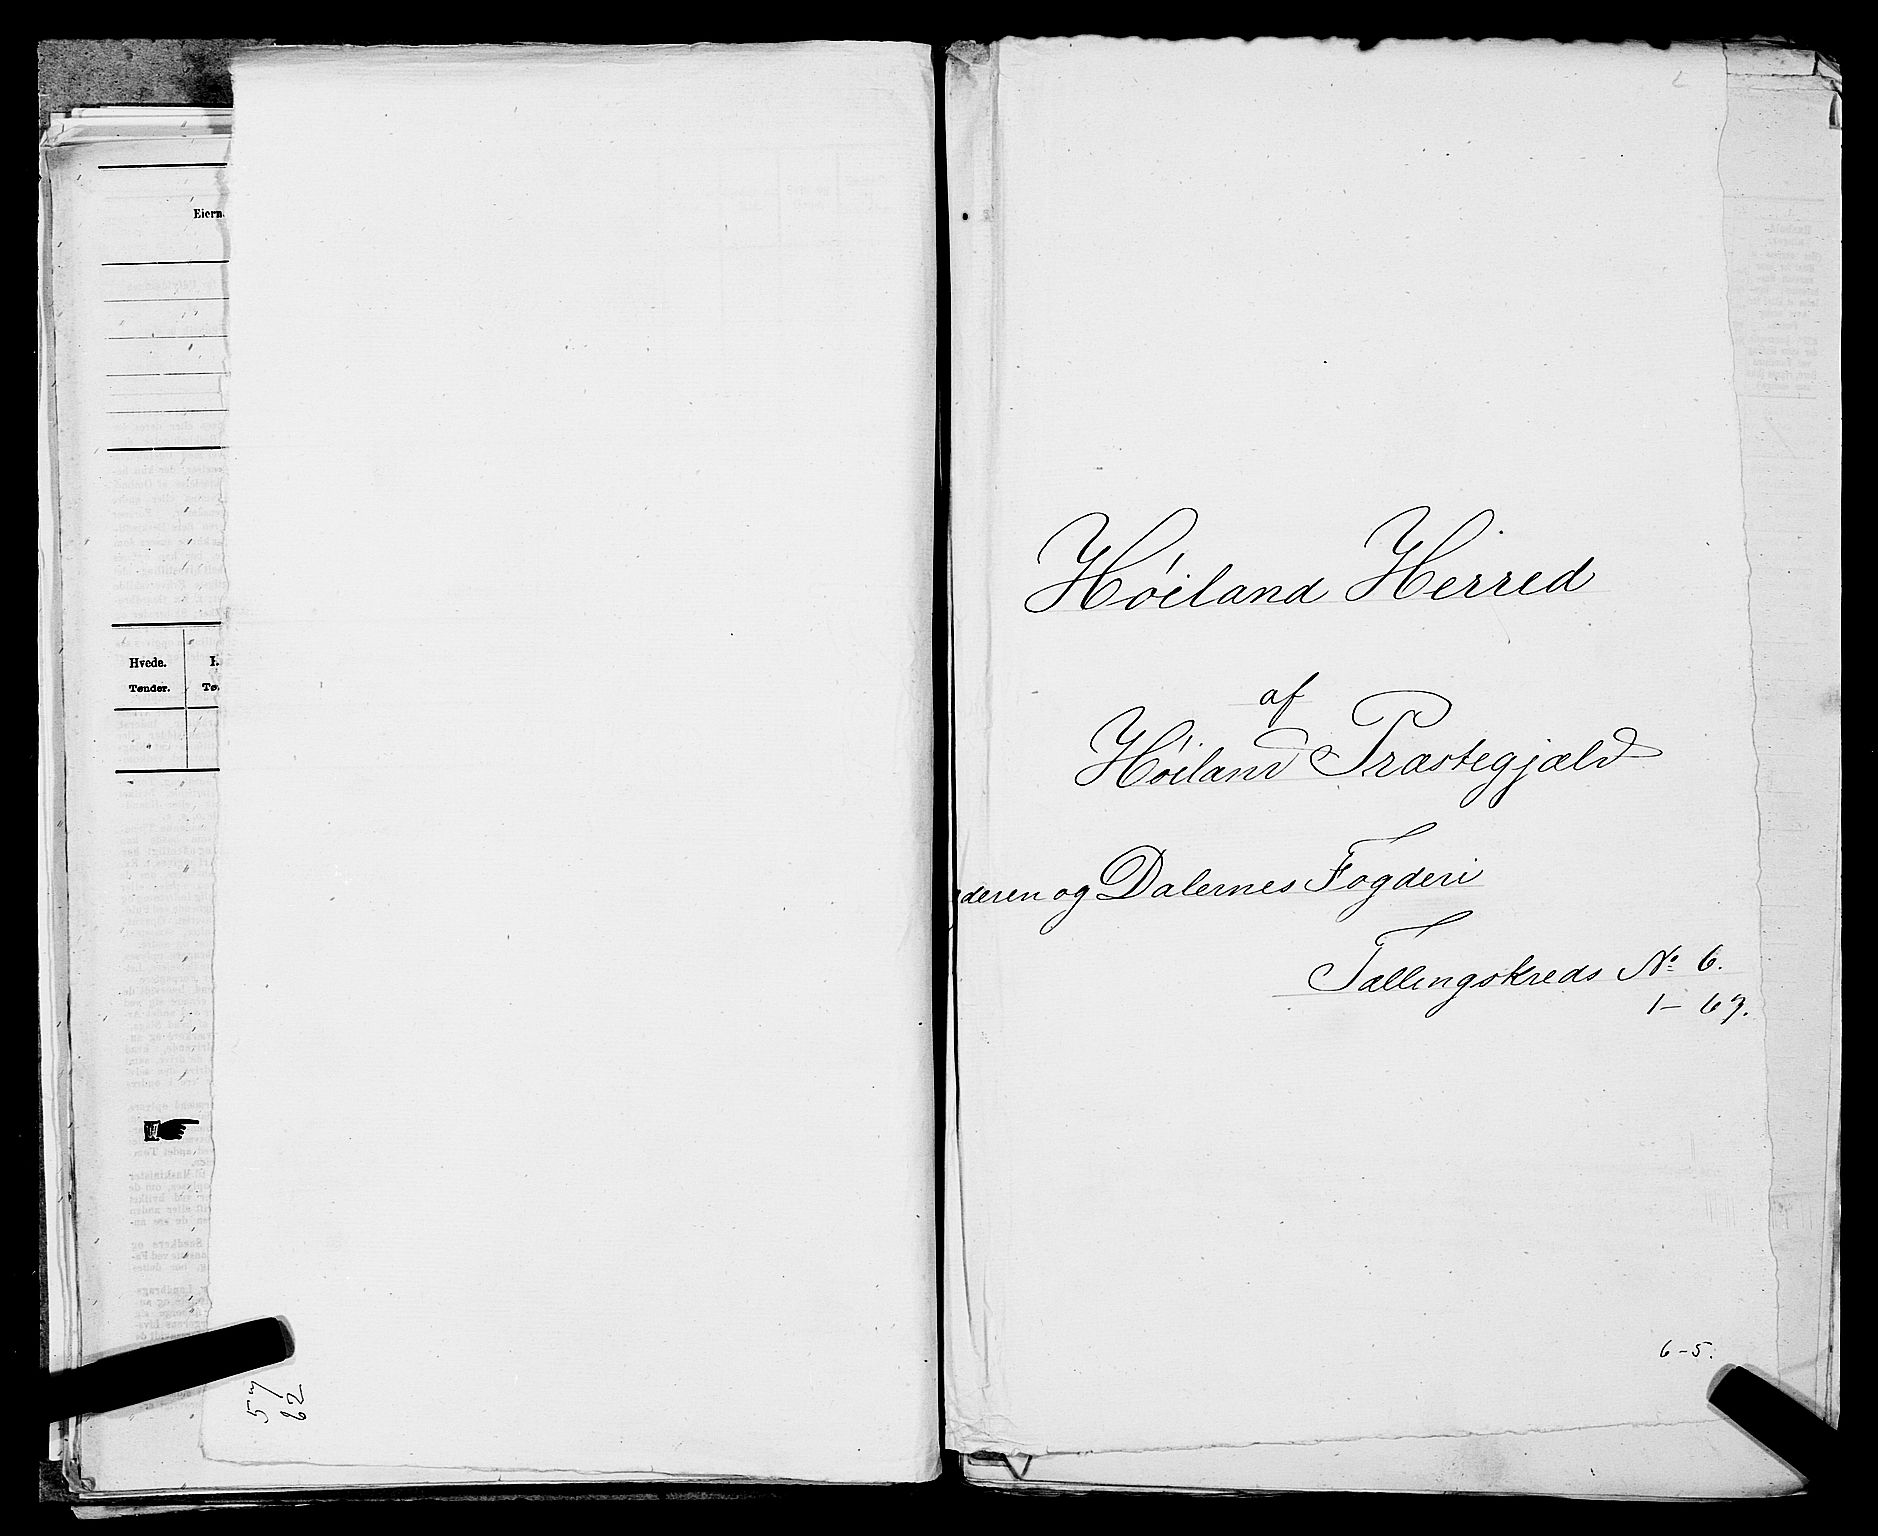 Eiern
Hvede.
Tønder.
57
62
Høiland Herred
af
Høiland Præstegjæld
deren og Dalernes Fogderi
Tællingskreds No 6.
1 – 67.
6 – 5.